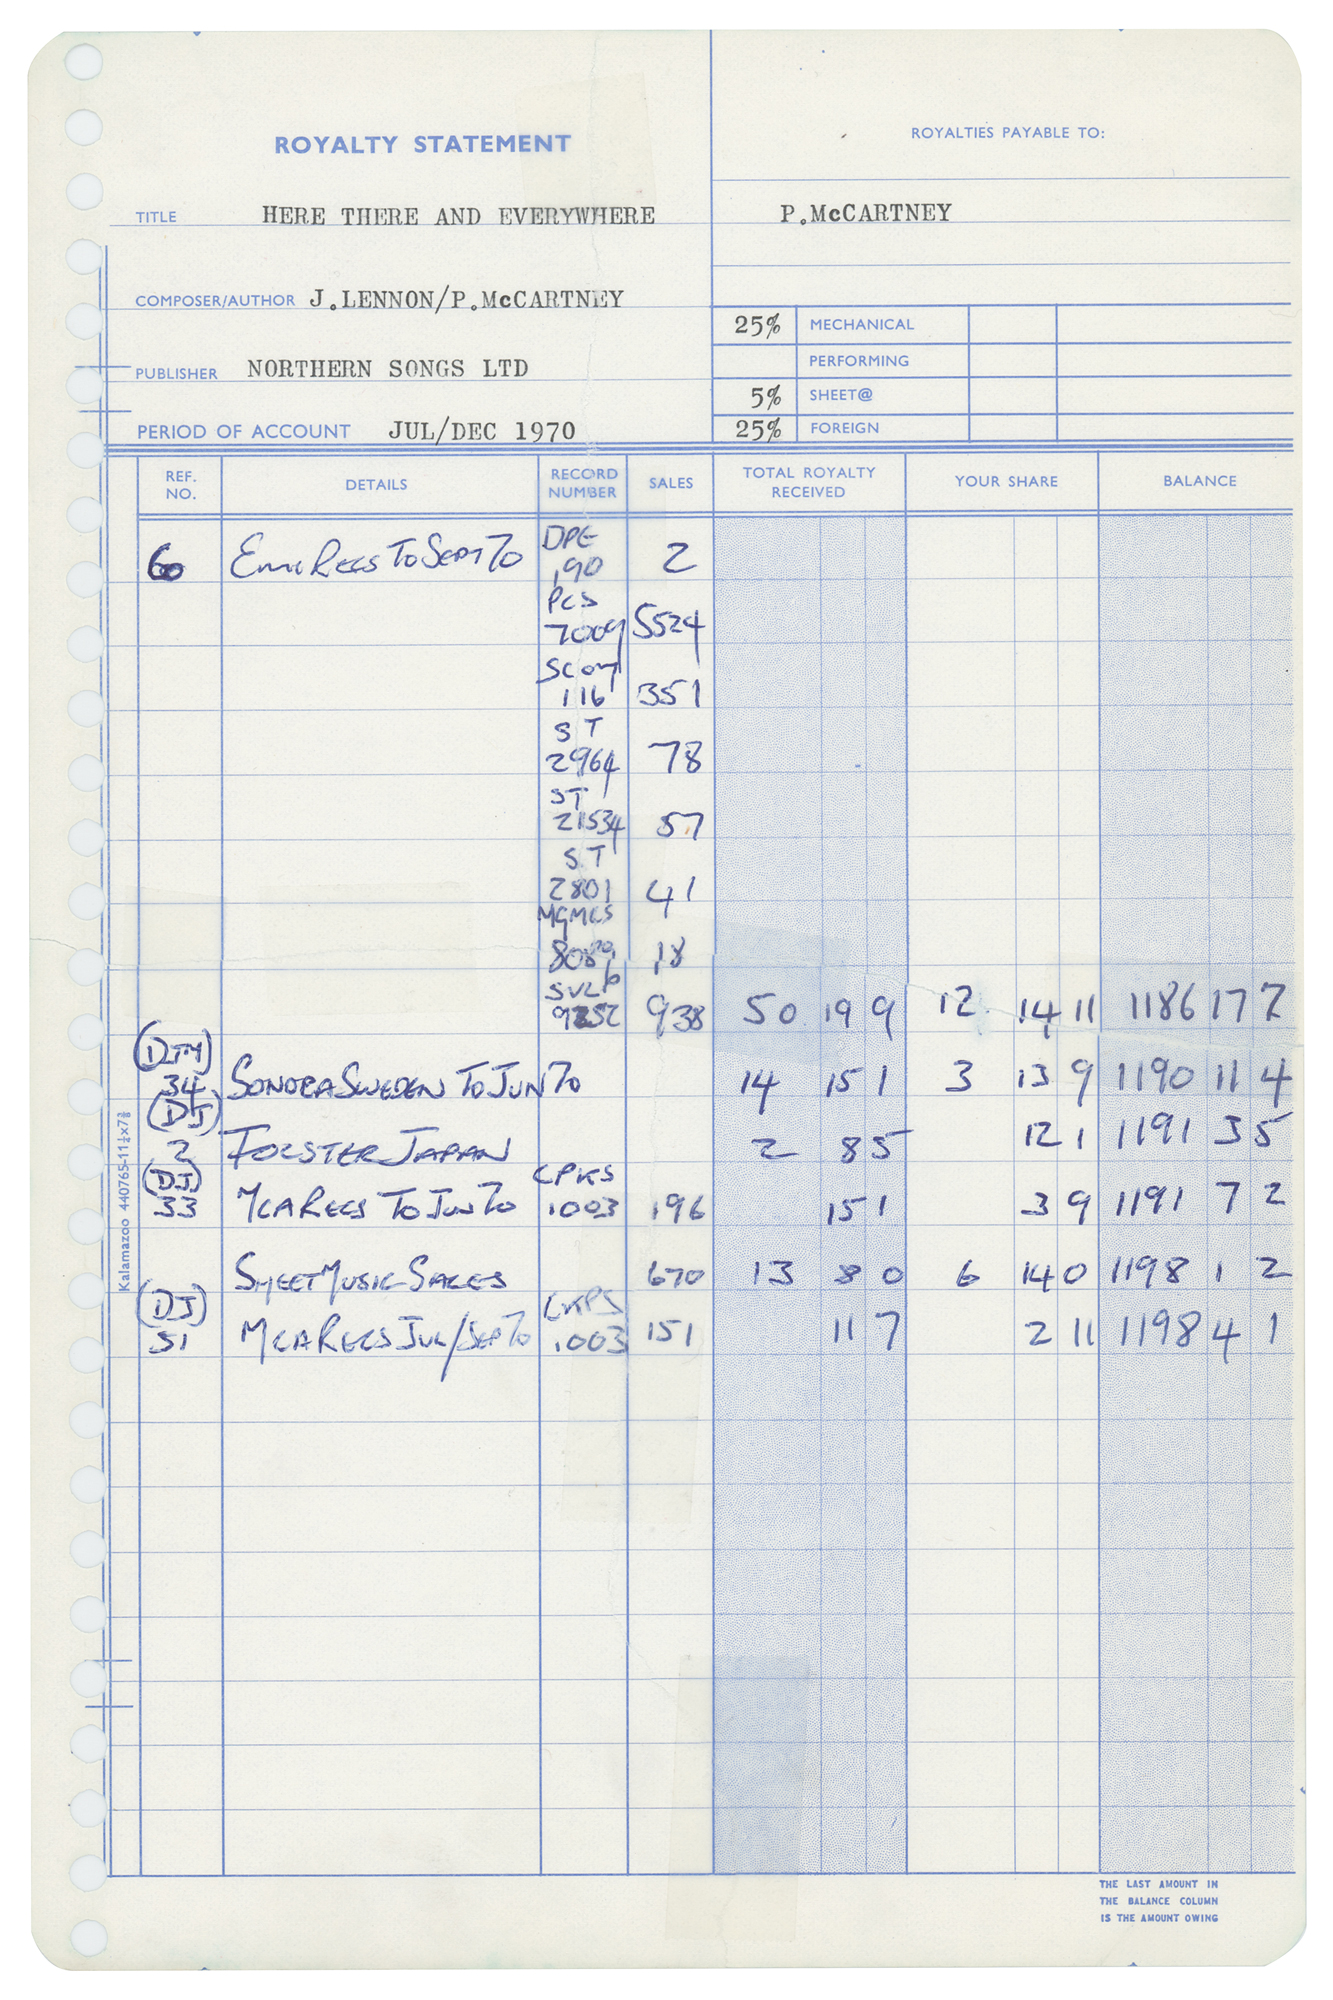 ROYALTY STATEMENT
ROYALTIES PAYABLE TO:
TITLE HERE THERE AND EVERYWHERE
P.McCARTNEY
COMPOSER/AUTHOR J.LENNON/P.McCARTNEY
25% MECHANICAL
PERFORMING
PUBLISHER NORTHERN SONGS LTD
5% SHEET@
PERIOD OF ACCOUNT JUL/DEC 1970
25% FOREIGN
REF. NO. DETAILS RECORD NUMBER SALES TOTAL ROYALTY RECEIVED YOUR SHARE BALANCE
60 EMI RECS TO SEPT 70 DPE 190 2
PCS 7009 5524
116 351
ST 2964 78
ST 21534 57
ST 2801 41
8089 18
938 50 19 9 12 14 11 1186 17 7
34 SONORA SWEDEN TO JUN 70 14 15 1 3 13 9 1190 11 4
(DJ)
2 FOLSTER JAPAN 2 8 5 12 1 1191 3 5
(DJ)
33 MCA RECS TO JUN 70 CPKS 1003 196 15 1 3 9 1191 7 2
SHEET MUSIC SALES 670 13 8 0 6 14 0 1198 1 2
(DJ)
51 MCA RECS JUL/SEP 70 CKPS 1003 151 11 7 2 11 1198 4 1
Kalamazoo 440765-11¼x7⅞
THE LAST AMOUNT IN
THE BALANCE COLUMN
IS THE AMOUNT OWING